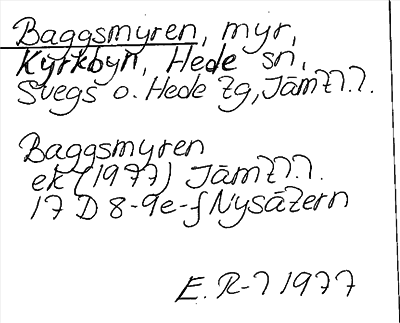 Baggsmyren, myr,
Kyrkbyn, Hede sn,
Svegs o. Hede tg, Jämtl.l.
Baggsmyren
ek (1977) Jämtl.l.
17 D 8-9e-f Nysätern
E. R-l 1977